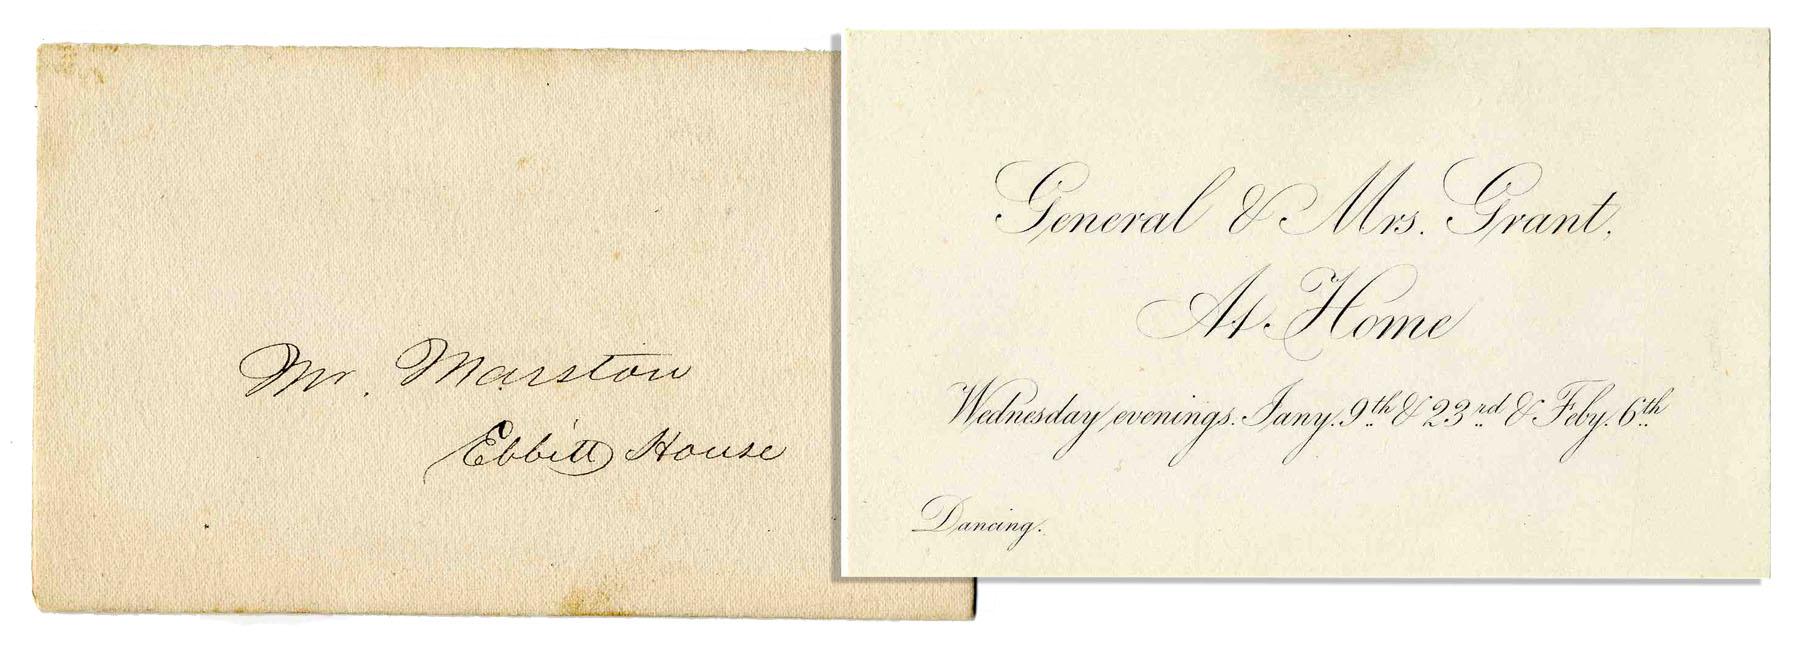 Mr. Marston
Ebbitt House
General & Mrs. Grant,
At Home
Wednesday evenings. Jany. 9th & 23rd & Feby. 6th
Dancing.